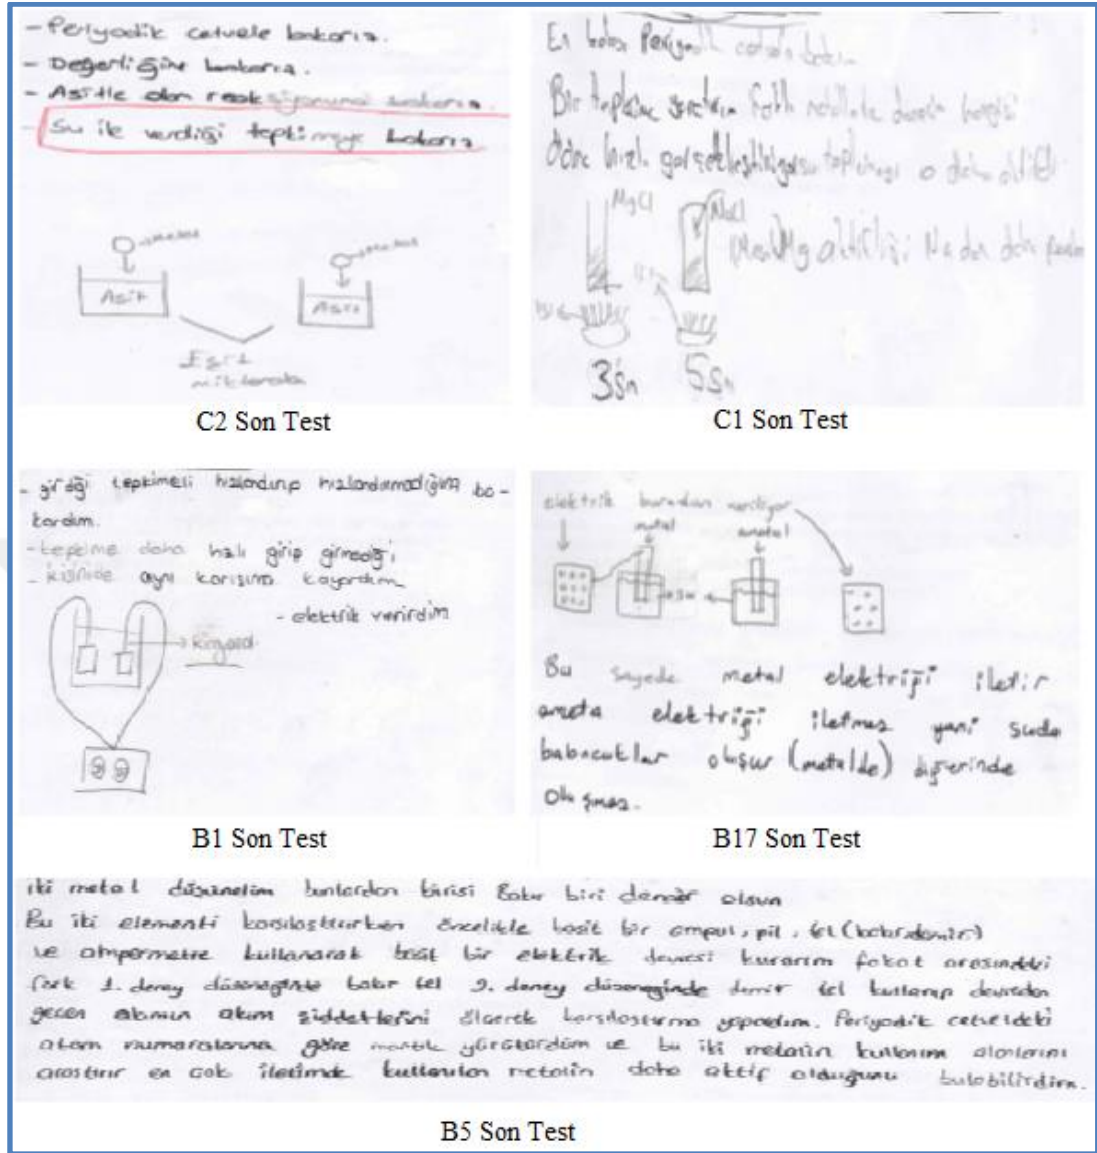 - Periyodik cetvele bakarız.
- Değerliğine bakarız.
- Asitle olan reaksiyonuna bakarız.
Su ile verdiği tepkimeye bakarız
metal
metal
Asit
Asit
Eşit
miktarda
C2 Son Test
En başta Periyodik
Bir tepkime yaratırım farklı metallerle hangisi
daha hızlı gerçekleştiriyorsa tepkimeyi o daha aktiftir
MgCl
NaCl
Mg aktifliği Na dan daha fazla
ısı
3Sn
5Sn
C1 Son Test
- girdiği tepkimeli hızlandırıp hızlandırmadığına ba-
kardım.
- tepkime daha hızlı girip girmediği
- kisnide aynı karışıma koyardım
- elektrik verirdim
B1 Son Test
elektrik buradan veriliyor
metal
ametal
su
Bu sayede metal elektriği iletir
ameta elektriği iletmez yani suda
babacuklar oluşur (metalde) diğerinde
oluşmaz.
B17 Son Test
iki metal düşünelim bunlardan birisi Bakır biri demir olsun
Bu iki elementi karşılaştırırken öncelikle basit bir ampul, pil, tel (bakır, demir)
ve ampermetre kullanarak basit bir elektrik devresi kurarım fakat arasındaki
fark 1. deney düzeneğinde bakır tel 2. deney düzeneğinde demir tel kullanıp devreden
geçen akımın akım şiddetlerini ölçerek karşılaştırma yapardım. Periyodik cetveldeki
atom numaralarına göre mantık yürütürdüm ve bu iki metalin kullanım alanlarını
araştırır en çok iletimde kullanılan metalin daha aktif olduğunu bulabilirdim.
B5 Son Test